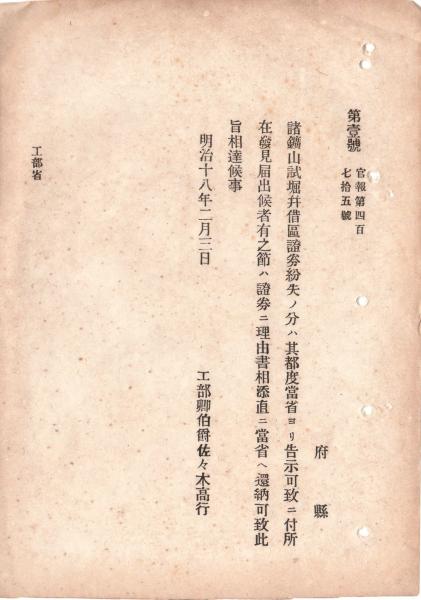 第壹號
官報第四百
七拾五號
府縣
諸鑛山試堀幷借區證券紛失ノ分ハ其都度當省ヨリ告示可致ニ付所
在發見届出候者有之節ハ證券ニ理由書相添直ニ當省ヘ還納可致此
旨相達候事
明治十八年二月三日
工部卿伯爵佐々木高行
工部省